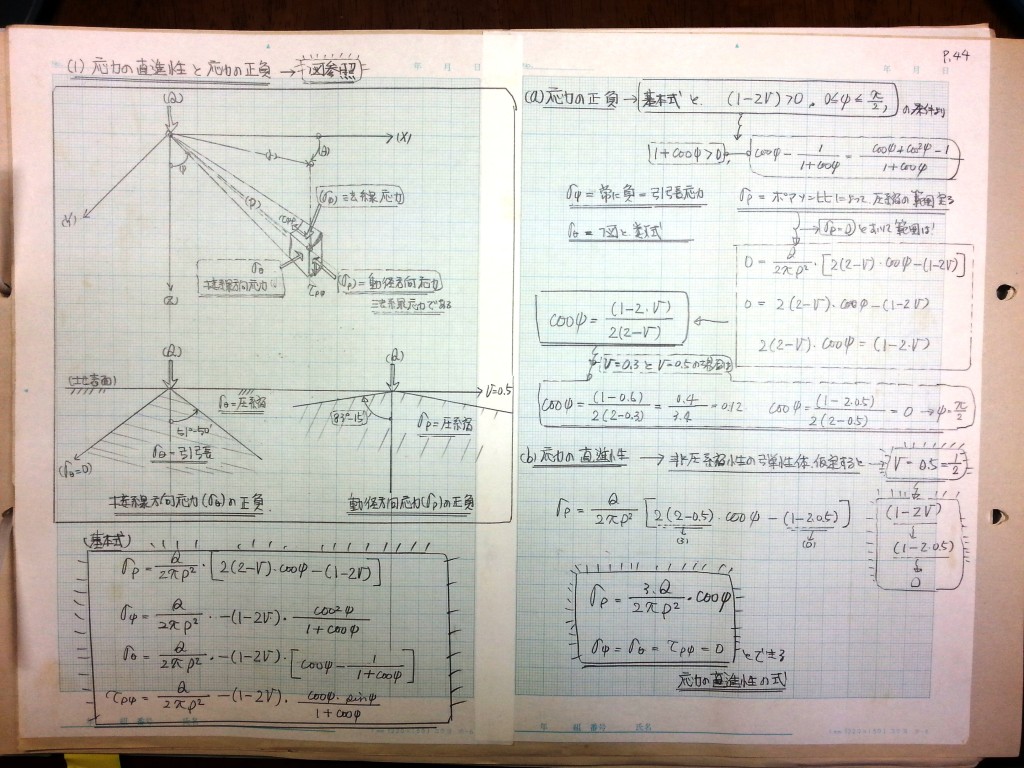 P.44
(1) 応力の直進性と応力の正負 → 図参照
(Q)
(X)
(Y)
(Z)
ψ
(ρ)
τρψ
(σψ)=法線応力
σθ
接線方向応力
(σρ)=動径方向応力
τρψ
(Q)
(地表面)
σθ=圧縮
51°-50'
σθ=引張
(σθ=0)
接線方向応力(σθ)の正負
(Q)
V=0.5
83°-15'
σρ=圧縮
動径方向応力(σρ)の正負
(基本式)
σρ = Q/2πρ² · [2(2-V)·cosψ-(1-2V)]
σψ = Q/2πρ² · -(1-2V) · cos²ψ/1+cosψ
σθ = Q/2πρ² · -(1-2V) · [cosψ - 1/1+cosψ]
τρψ = Q/2πρ² -(1-2V) · cosψ·sinψ/1+cosψ
年 組 番号 氏名
年 月 日
(a) 応力の正負 → 基本式と、 (1-2V)>0 , 0≤ψ≤π/2, の条件より
1+cosψ>0, cosψ - 1/1+cosψ = cosψ+cos²ψ-1/1+cosψ
σψ = 常に負=引張応力
σρ = ポアソン比によって圧縮の範囲定る
σθ = 下図と
→ (σρ=0)とおいて範囲は!
0 = Q/2πρ² · [2(2-V)·cosψ-(1-2V)]
0 = 2(2-V)·cosψ-(1-2V)
2(2-V)·cosψ = (1-2·V)
cosψ = (1-2·V)/2(2-V)
V=0.3とV=0.5の場合は
cosψ = (1-0.6)/2(2-0.3) = 0.4/3.4 = 0.12 cosψ = (1-2·0.5)/2(2-0.5) = 0 → ψ=π/2
(b) 応力の直進性 → 非圧縮性の弾性体、仮定すると → V=0.5=1/2
σρ = Q/2πρ² [2(2-0.5)·cosψ-(1-2·0.5)]
(3) (0)
(1-2V)
↓
(1-2·0.5)
↓
0
σρ = 3·Q/2πρ² · cosψ
σψ = σθ = τρψ = 0 とできる
応力の直進性の式
年 組 番号 氏名